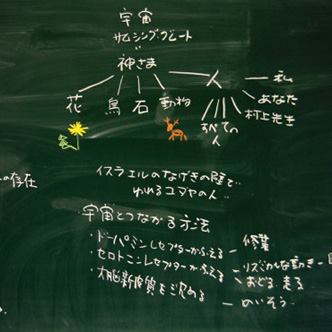 宇宙
サムシンググレート
神さま
花 鳥 石 動物 人
私
あなた
村上先生
すべての
人
の存在
イスラエルのなげきの壁で
ゆれるユダヤの人
・宇宙とつながる方法
・ドーパミンレセプターがふえる ー 修業
・セロトニンレセプターがふえる ー リズミカルな動き
おどる 走る
・大脳新皮質を沈める ー めいそう